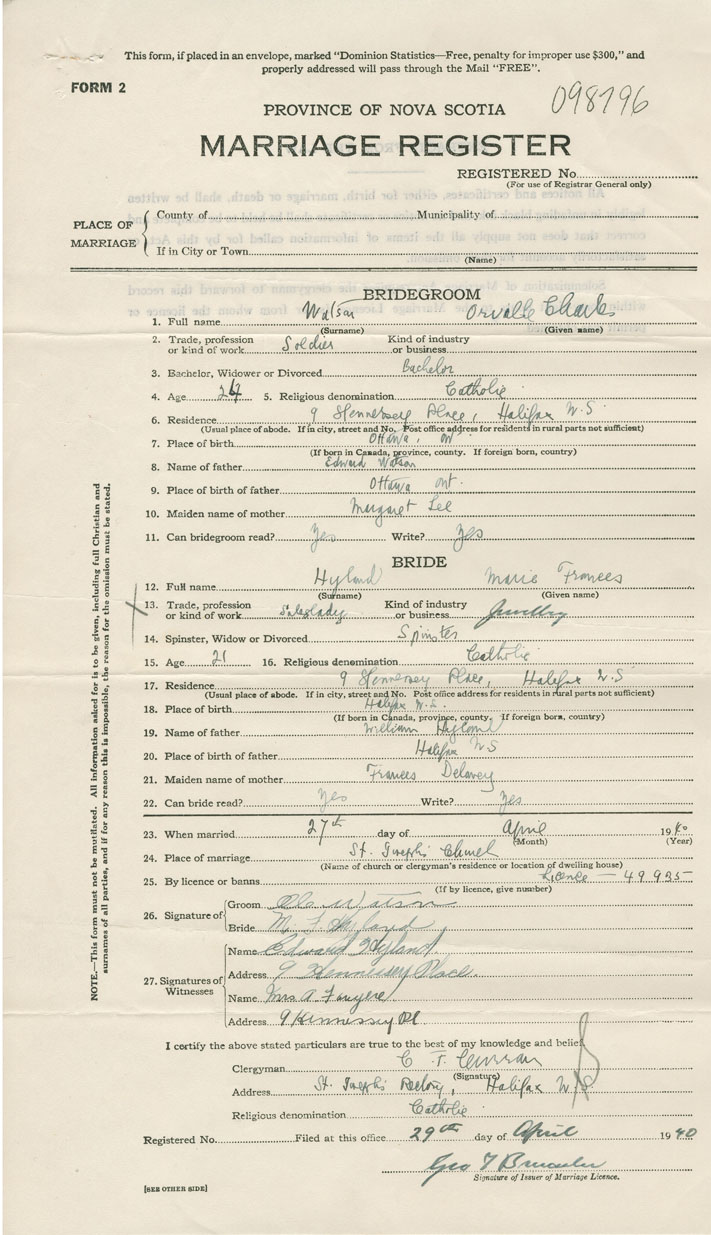 This form, if placed in an envelope, marked "Dominion Statistics—Free, penalty for improper use $300," and
properly addressed will pass through the Mail "FREE".
FORM 2
098796
PROVINCE OF NOVA SCOTIA
MARRIAGE REGISTER
REGISTERED No.
(For use of Registrar General only)
PLACE OF MARRIAGE
County of Municipality of
If in City or Town
(Name)
BRIDEGROOM
1. Full name Watson Orville Charles
(Surname) (Given name)
2. Trade, profession or kind of work Soldier Kind of industry or business
3. Bachelor, Widower or Divorced Bachelor
4. Age 24 5. Religious denomination Catholic
6. Residence 9 Hennersey Place, Halifax N.S.
(Usual place of abode. If in city, street and No. Post office address for residents in rural parts not sufficient)
7. Place of birth Ottawa, Ont
(If born in Canada, province, county. If foreign born, country)
8. Name of father Edward Watson
9. Place of birth of father Ottawa Ont.
10. Maiden name of mother Margaret Lee
11. Can bridegroom read? Yes Write? Yes
BRIDE
12. Full name Hyland Marie Frances
(Surname) (Given name)
13. Trade, profession or kind of work Saleslady Kind of industry or business Jewellry
14. Spinster, Widow or Divorced Spinster
15. Age 21 16. Religious denomination Catholic
17. Residence 9 Hennersey Place, Halifax N.S
(Usual place of abode. If in city, street and No. Post office address for residents in rural parts not sufficient)
18. Place of birth Halifax N.S.
(If born in Canada, province, county. If foreign born, country)
19. Name of father William Hyland
20. Place of birth of father Halifax NS
21. Maiden name of mother Frances Delaney
22. Can bride read? Yes Write? Yes
23. When married 27th day of April 1940
(Month) (Year)
24. Place of marriage St. Joseph's Church
(Name of church or clergyman's residence or location of dwelling house)
25. By licence or banns Licence — 49925
(If by licence, give number)
26. Signature of
Groom Watson
Bride M F Hyland
27. Signatures of Witnesses
Name Edward Hyland.
Address 9 Hennessey Place.
Name Mrs A.
Address 9 Hennessey Pl
I certify the above stated particulars are true to the best of my knowledge and belief
Clergyman C. F. Curran
(Signature)
Address St. Joseph's Rectory, Halifax N.S
Religious denomination Catholic
Registered No. Filed at this office 29th day of April 1940
Geo T
Signature of Issuer of Marriage Licence.
[SEE OTHER SIDE]
NOTE.—This form must not be mutilated. All information asked for is to be given, including full Christian and
surnames of all parties, and if for any reason this is impossible, the reason for the omission must be stated.